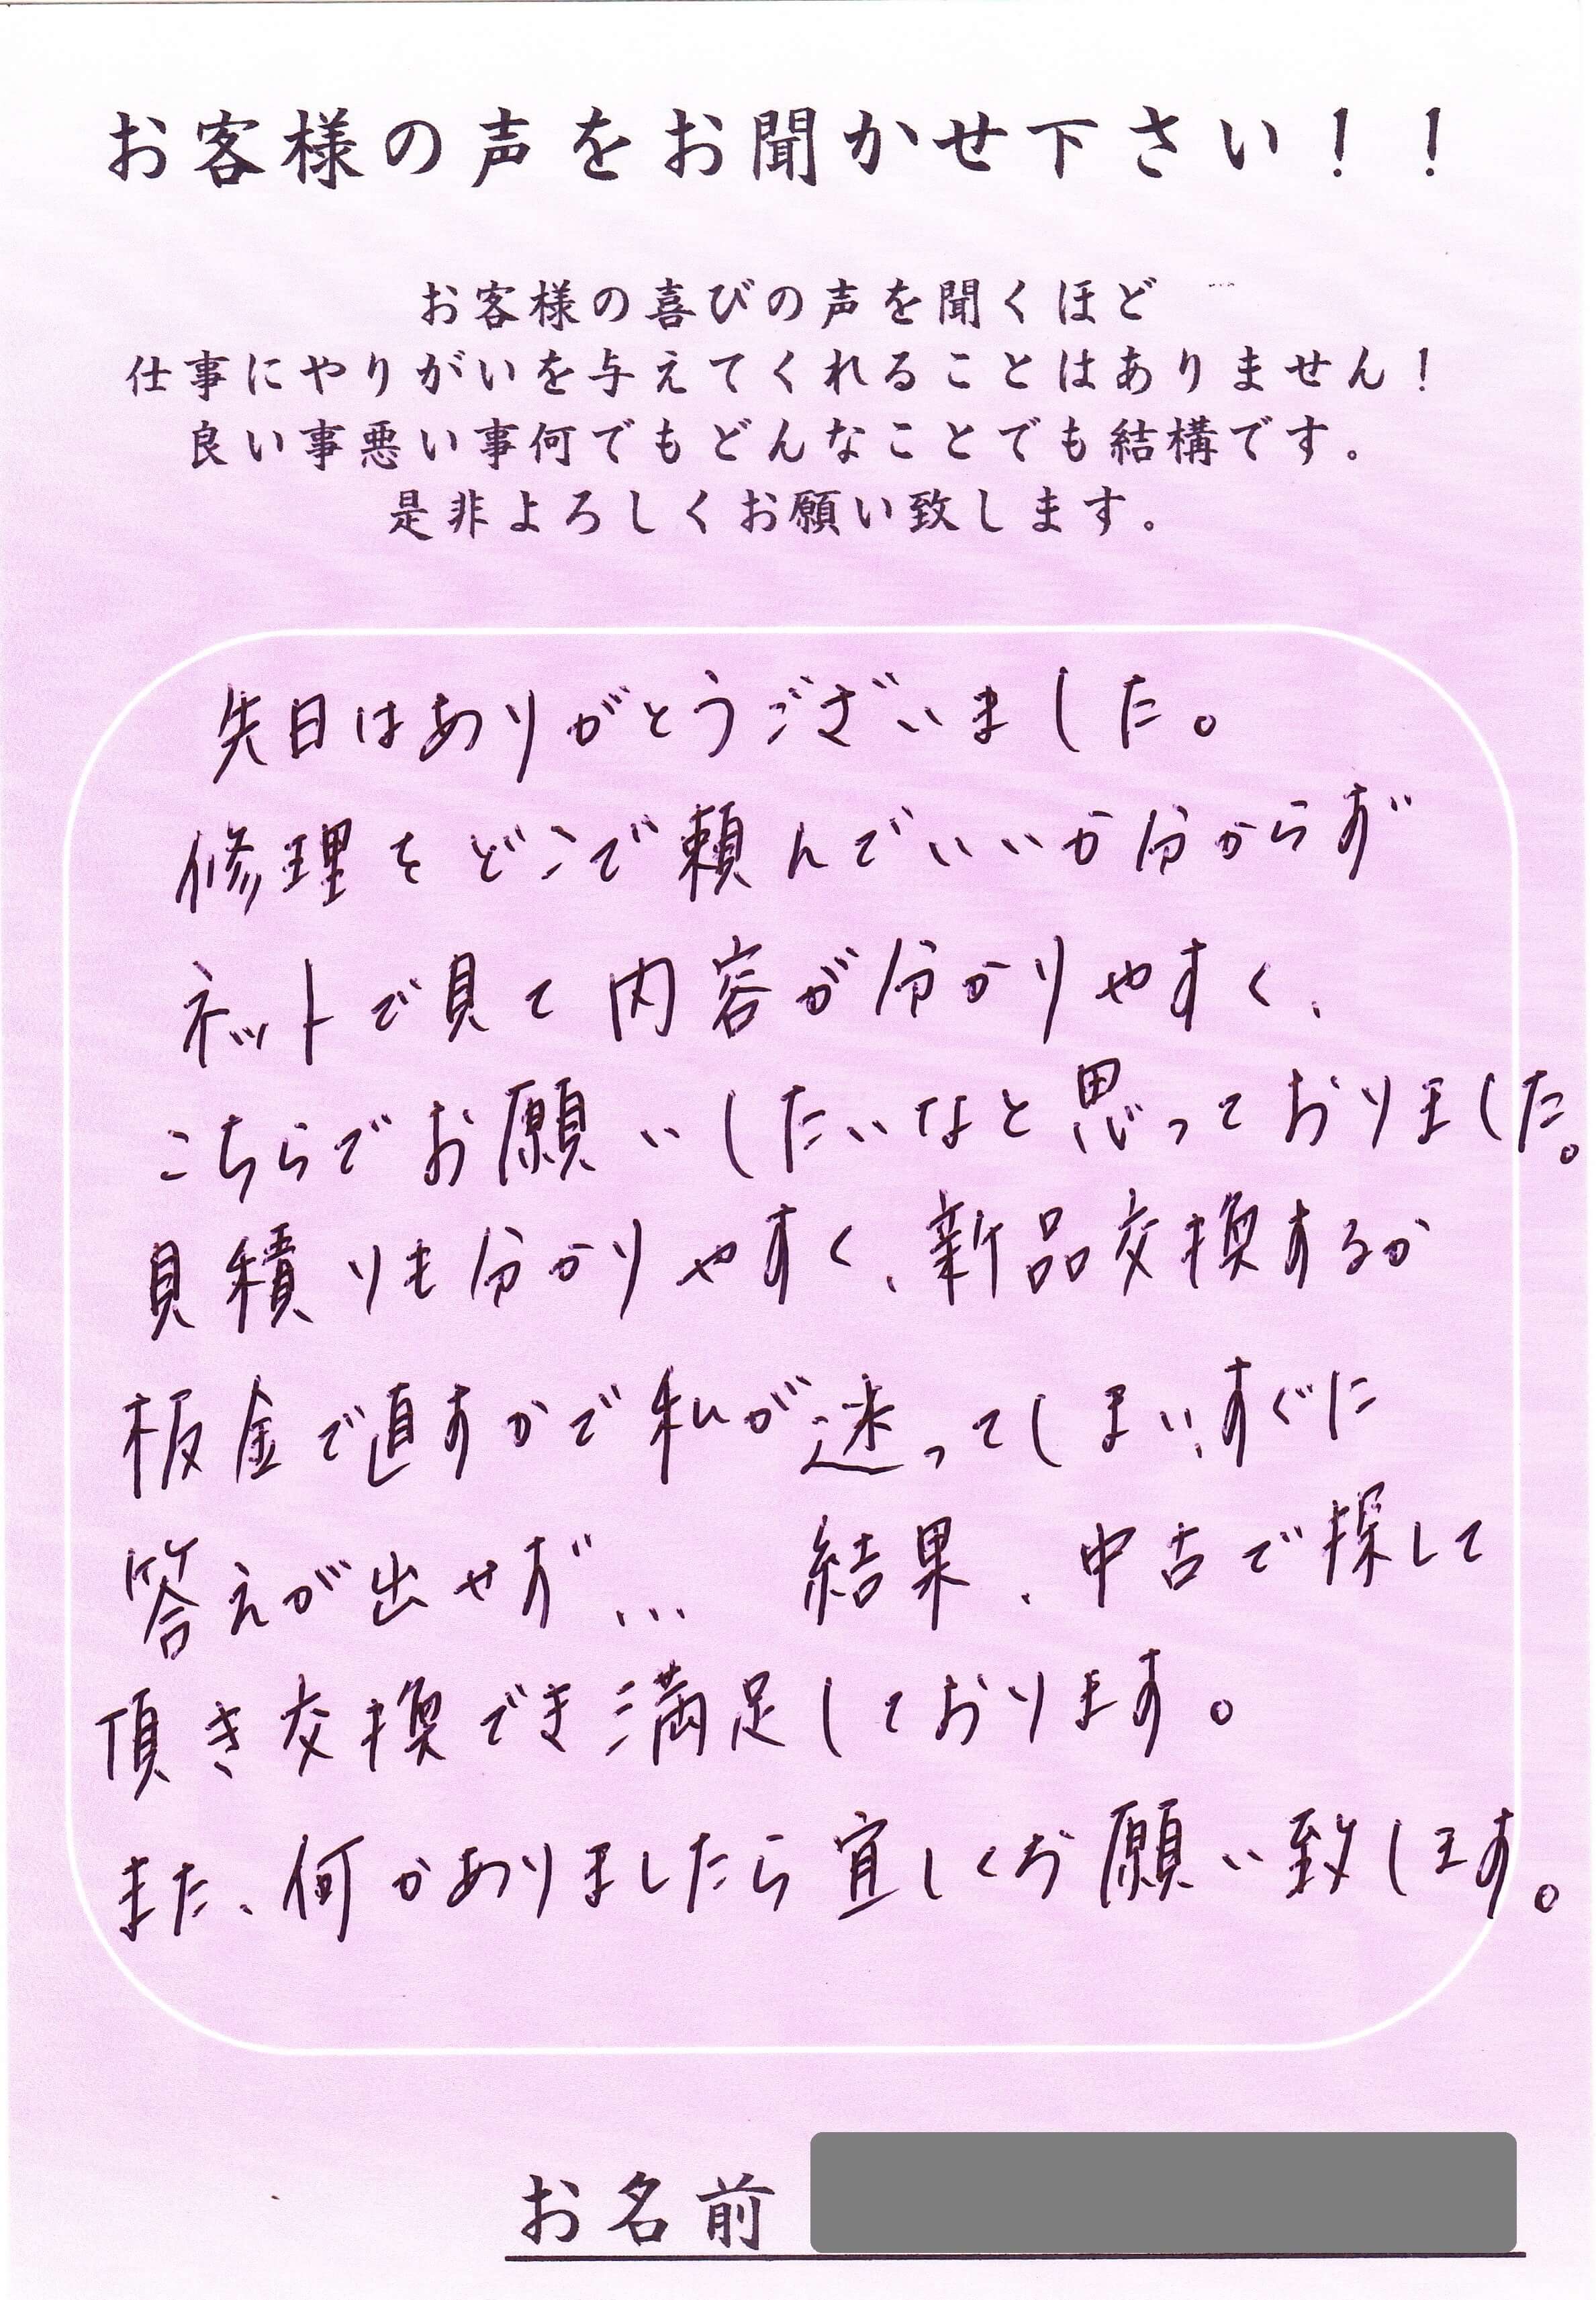 お客様の声をお聞かせ下さい！！
お客様の喜びの声を聞くほど
仕事にやりがいを与えてくれることはありません！
良い事悪い事何でもどんなことでも結構です。
是非よろしくお願い致します。
先日はありがとうございました。
修理をどこで頼んでいいか分からず
ネットで見て内容が分かりやすく、
こちらでお願いしたいなと思っておりました。
見積りも分かりやすく、新品交換するか
板金で直すかで私が迷ってしまい、すぐに
答えが出せず... 結果、中古で探して
頂き交換でき満足しております。
また、何かありましたら宜しくお願い致します。
お名前